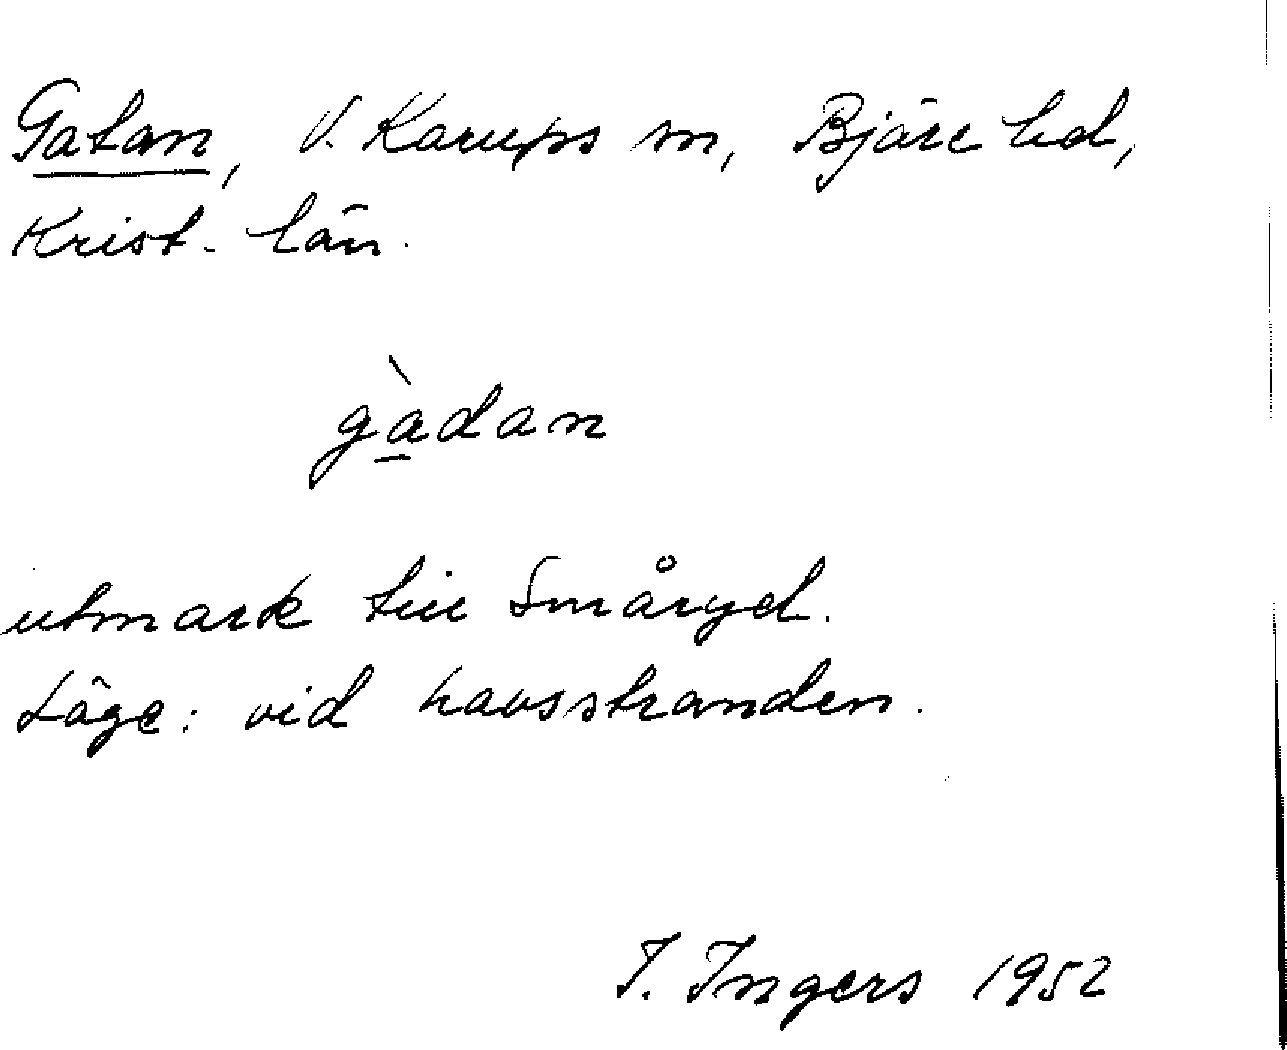 Gatan, V. Karups sn, Bjäre hd,
Krist. län.
gà̱dan
utmark till Småryd.
Läge: vid havsstranden.
I. Ingers 1952